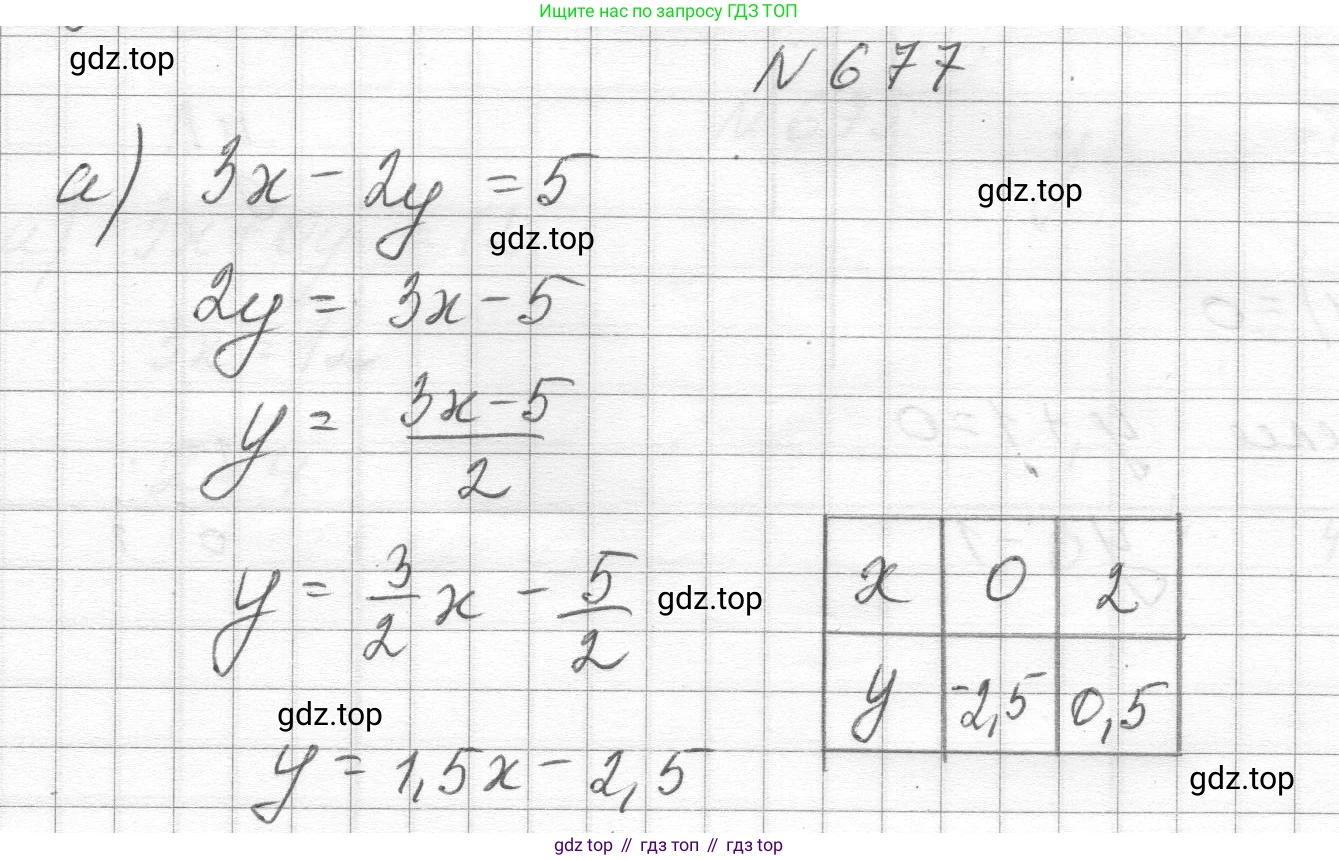 Ищите нас по запросу ГДЗ ТОП
gdz.top
N 677
а) 3x - 2y = 5
gdz.top
gdz.top
2y = 3x - 5
y = (3x - 5)/2
y = 3/2 x - 5/2
gdz.top
x 0 2
y -2,5 0,5
gdz.top
y = 1,5x - 2,5
gdz.top
gdz top // гдз топ // гдз top